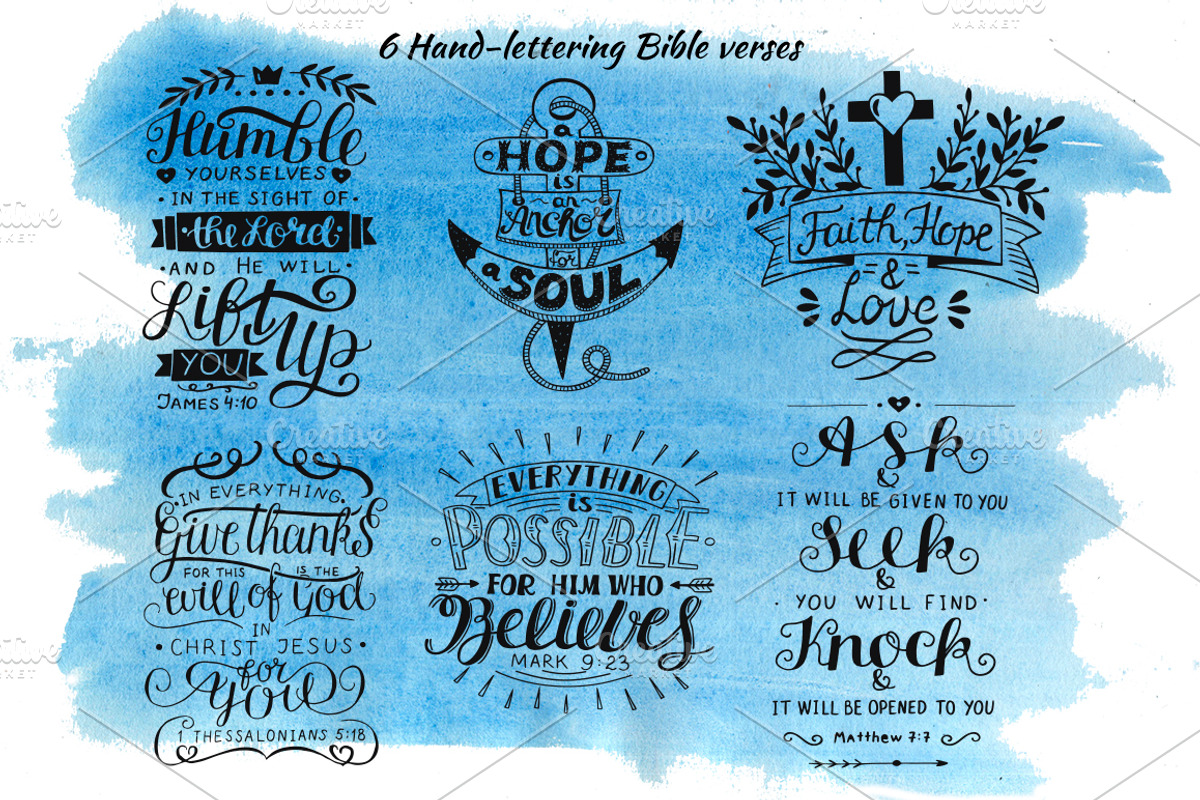 6 Hand-lettering Bible verses
Humble
YOURSELVES
IN THE SIGHT OF
the Lord
AND HE WILL
Lift Up
YOU
JAMES 4:10
a
HOPE
is
an
Anchor
for
a SOUL
Faith, Hope
&
Love
IN EVERYTHING
Give thanks
FOR THIS IS THE
will of God
IN
CHRIST JESUS
for
you
1 THESSALONIANS 5:18
EVERYTHING
is
POSSIBLE
FOR HIM WHO
Believes
MARK 9:23
Ask
&
IT WILL BE GIVEN TO YOU
Seek
&
YOU WILL FIND
Knock
&
IT WILL BE OPENED TO YOU
Matthew 7:7
Creative
MARKET